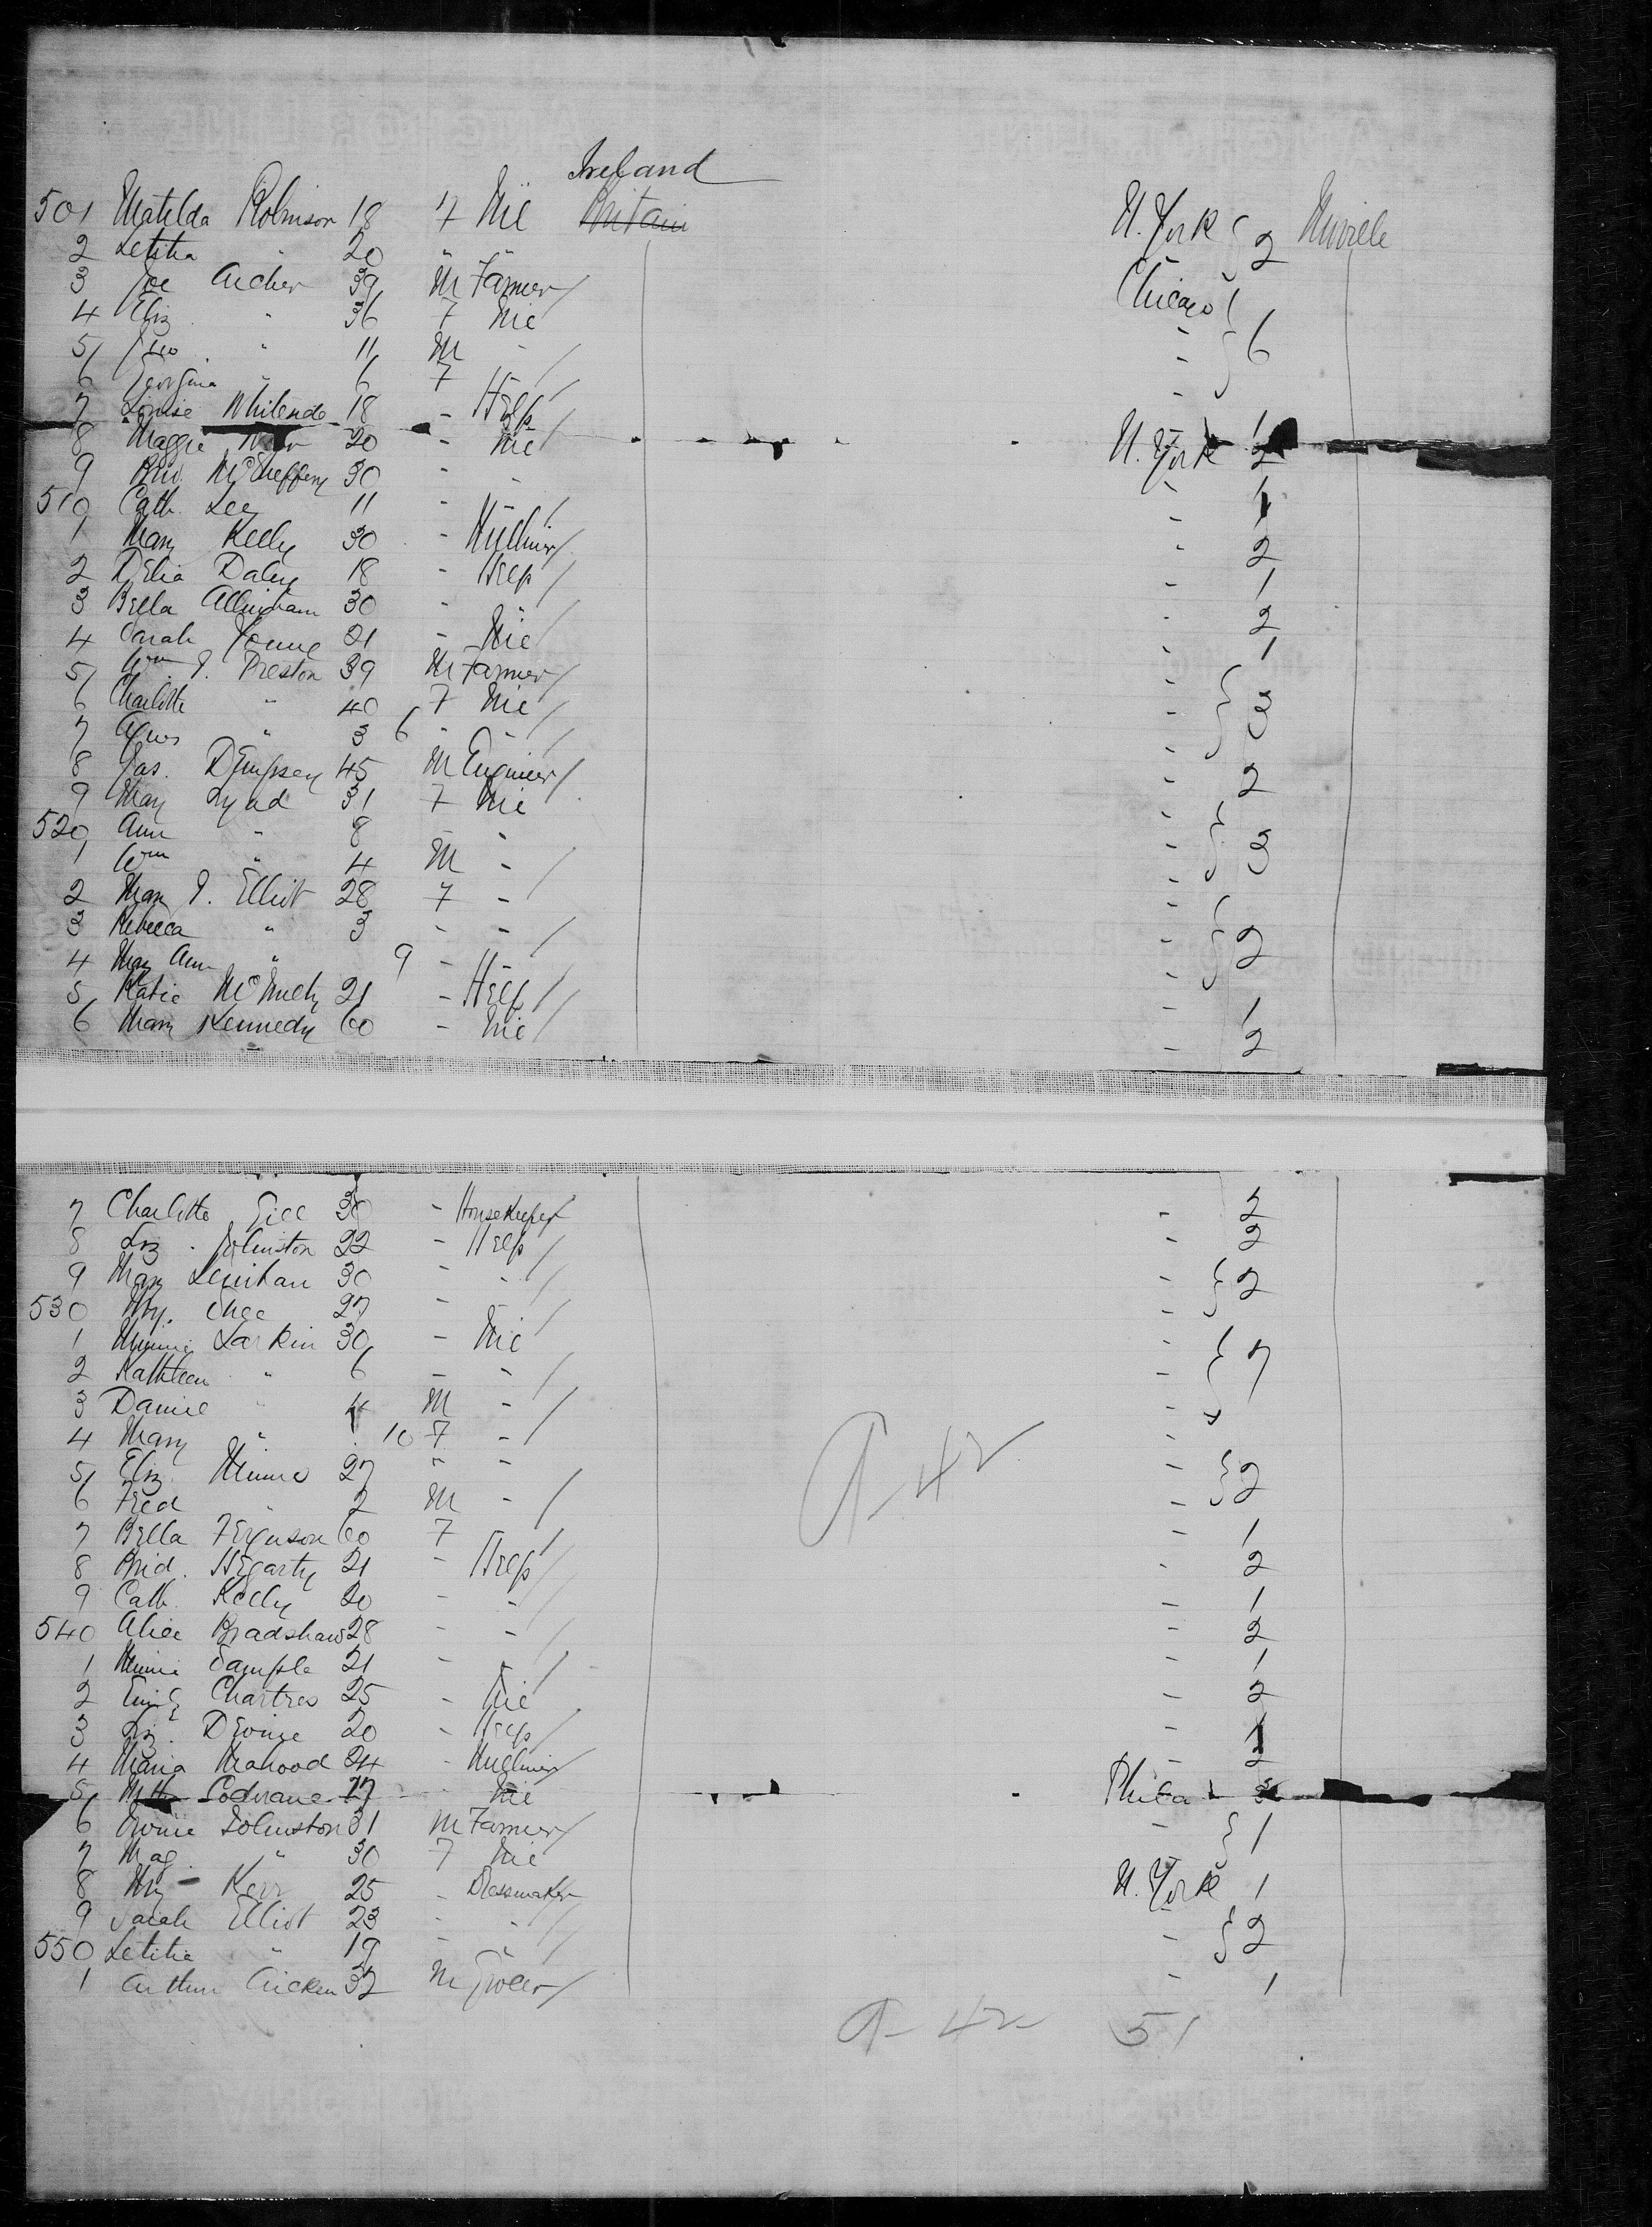 Ireland
501 Matilda Robinson 18 7 Nil Britain N. York 2
2 Letitia " 20 " "
3 Archer 39 M Farmer Chicago
4 Eliz " 36 7 Nil - 6
5 Jno " 11 M - -
6 Georgina " 6 7 -
7 Louise 18 - Help 1
8 Maggie 20 - Nil N. York 2
9 Brid. 30 - - - 1
510 Cath. Lee 11 - - - 1
1 Mary Kelly 30 - Milliner - 2
2 Delia Daly 18 - Help - 1
3 Bella Allingham 30 - - - 2
4 Sarah Young 21 - Nil - 1
5 Wm J. Preston 39 M Farmer -
6 Charlotte " 40 7 Nil - 3
7 Agnes " 3 6 - - -
8 Jas. Dempsey 45 M Engineer - 2
9 Mary 31 7 Nil -
520 Ann " 8 - - - 3
1 Wm " 4 M - -
2 Mary J. Elliot 28 7 - -
3 Rebecca " 3 - - - 2
4 Mary Ann " 9 - - -
5 Katie 21 - Help - 1
6 Mary Kennedy 60 - Nil - 2
7 Charlotte Gill 30 - Housekeeper - 2
8 Liz. Johnston 22 - Help - 2
9 Mary Lenihan 30 - - - 2
530 27 - - -
1 Minnie Larkin 30 - Nil -
2 Kathleen " 6 - - - 7
3 Daniel " 4 M - -
4 Mary " 10 7 - -
5 Eliz. 27 " - - 2
6 Fred " 2 M - -
7 Bella Ferguson 60 7 - 1
8 Brid. Hegarty 21 - Help - 2
9 Cath. Kelly 20 - - - 1
540 Alice Bradshaw 28 - - - 2
1 Minnie Sample 21 - - - 1
2 Emily Chartres 25 - Nil - 2
3 Liz. Devine 20 - Help - 1
4 Maria Mahood 24 - Milliner - 2
5 Cochrane 27 - Nil Phila
6 Johnston 31 M Farmer - 1
7 Mag. " 30 7 Nil
8 My Kerr 25 - Dressmaker N. York 1
9 Sarah Elliot 23 - - 2
550 Letitia " 19 - " -
1 Arthur Aicken 32 M Grocer - 1
42
42 51